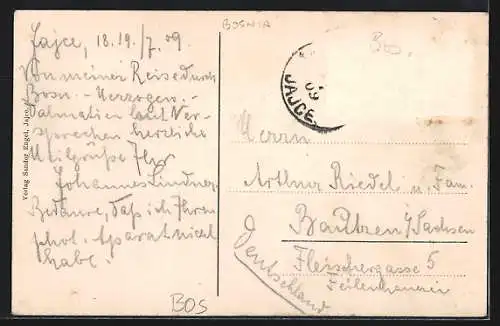 BOSNIA
Jajce, 18. 19./7. 09
Von meiner Reise durch
Bosn. - Herzogew. -
Dalmatien laut Ver-
sprechen herzliche
Ihr
Johannes Lindner
Bedaure, daß ich Ihren
phot. Aparat nicht
habe.
BOS
Verlag Sandor Engel, Jajce
BOS.
09
JAJCE
Herrn
Arthur Riedel u. Fam.
Bautzen i/Sachsen
Fleischergasse 5
Feilenhauerei
Deutschland